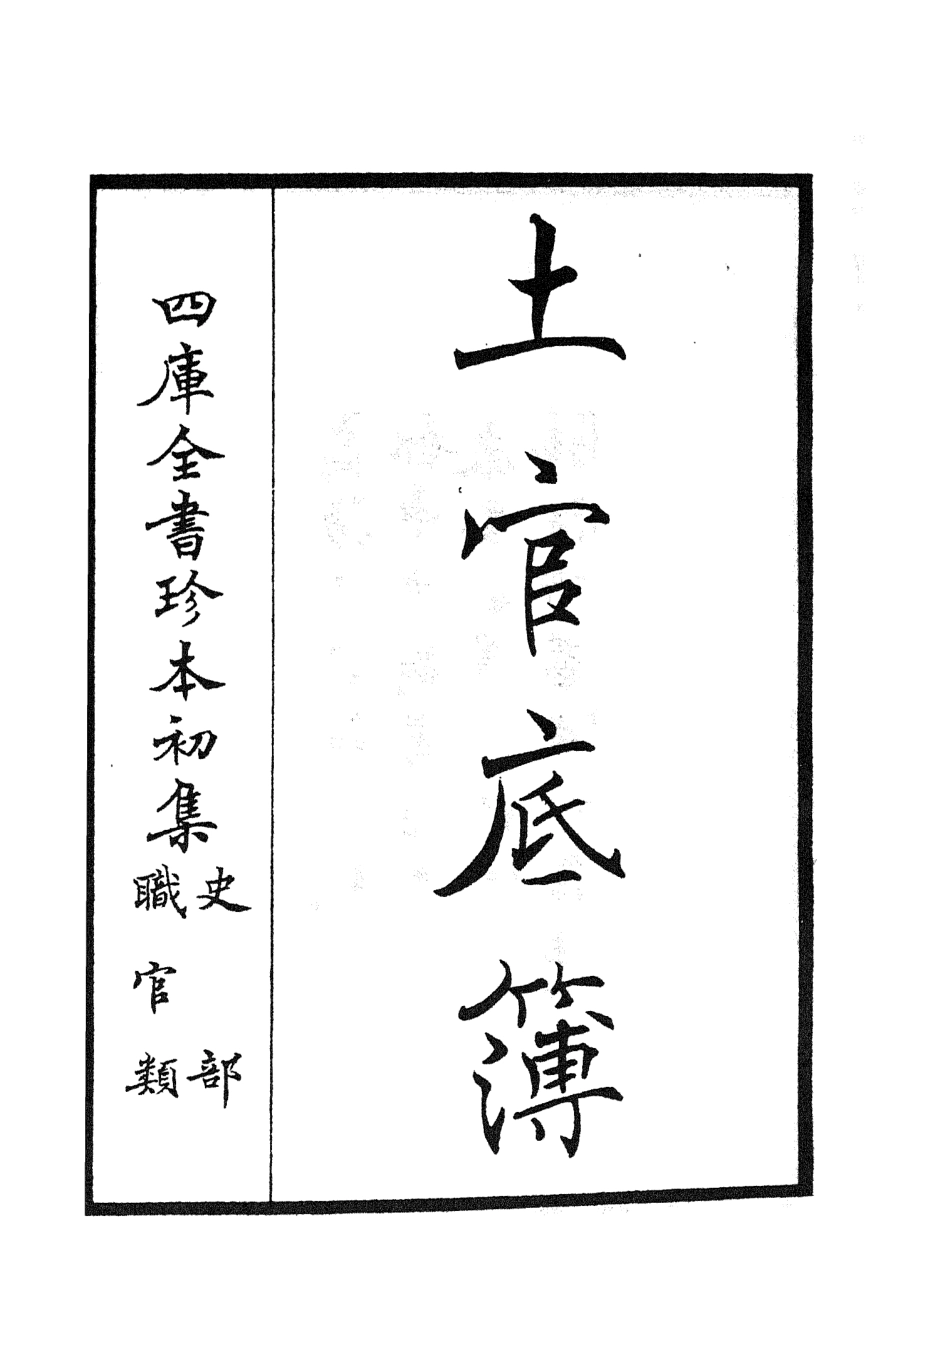 土官底簿
四庫全書珍本初集
史部
職官類